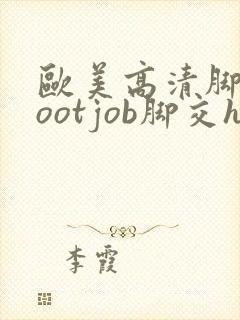 歐美高清腳
ootjob脚交h
李霞